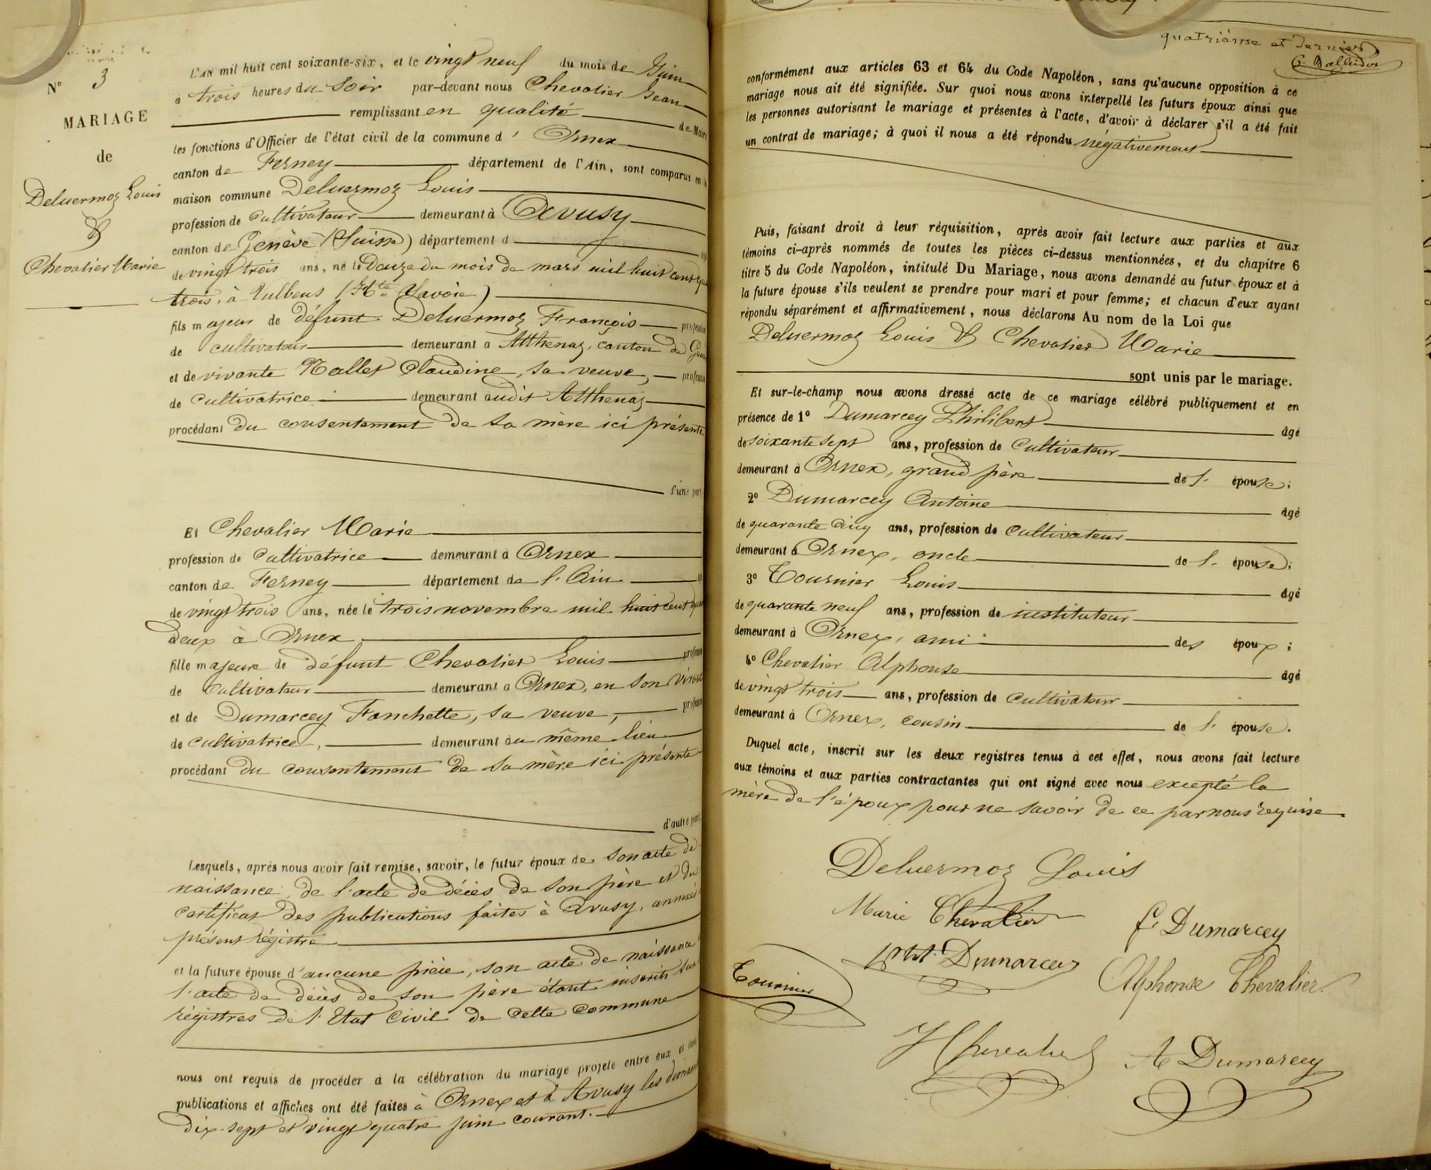 Nº 3
MARIAGE
de
Deluermoz Louis
&
Chevalier Marie
L'an mil huit cent soixante-six, et le vingt neuf du mois de Juin
a trois heures du soir par-devant nous Chevalier Jean
remplissant en qualité de Maire
les fonctions d'Officier de l'état civil de la commune d' Ornex
canton de Ferney département de l'Ain, sont comparus en la
maison commune Deluermoz Louis
profession de Cultivateur demeurant à Avusy
canton de Genève (Suisse) département d
de vingt trois ans, né le Douze du mois de mars mil huit cent
trois, à Vulbens (Hte Savoie)
fils majeur de défunt Deluermoz François
de cultivateur demeurant a Atthenaz, canton de
et de vivante Nallet Claudine, sa veuve,
de Cultivatrice demeurant audit Atthenaz
procédant du consentement de sa mère ici présente
l'une part
Et Chevalier Marie
profession de Cultivatrice demeurant à Ornex
canton de Ferney département de l'Ain
de vingt trois ans, née le trois novembre mil huit cent
deux à Ornex
fille majeure de défunt Chevalier Louis
de Cultivateur demeurant a Ornex, en son vivant
et de Dumarcey Fanchette, sa veuve,
de cultivatrice, demeurant au même lieu
procédant du consentement de sa mère ici présente
d'autre part
Lesquels, après nous avoir fait remise, savoir, le futur époux de son acte de
naissance, de l'acte de décès de son père et du
certificat des publications faites à Avusy, annexés
présent régistre
et la future épouse d'aucune pièce, son acte de naissance
l'acte de décès de son père étant inscrits sur
régistres de l'Etat Civil de cette commune
nous ont requis de procéder à la célébration du mariage projeté entre eux et dont
publications et affiches ont été faites à Ornex et à Avusy les dimanches
dix-sept et vingt quatre juin courant.
quatrième et dernier
conformément aux articles 63 et 64 du Code Napoléon, sans qu'aucune opposition à ce
mariage nous ait été signifiée. Sur quoi nous avons interpellé les futurs époux ainsi que
les personnes autorisant le mariage et présentes à l'acte, d'avoir à déclarer s'il a été fait
un contrat de mariage; à quoi il nous a été répondu négativement
Puis, faisant droit à leur réquisition, après avoir fait lecture aux parties et aux
témoins ci-après nommés de toutes les pièces ci-dessus mentionnées, et du chapitre 6
titre 5 du Code Napoléon, intitulé Du Mariage, nous avons demandé au futur époux et à
la future épouse s'ils veulent se prendre pour mari et pour femme; et chacun d'eux ayant
répondu séparément et affirmativement, nous déclarons Au nom de la Loi que
Deluermoz Louis & Chevalier Marie
sont unis par le mariage.
Et sur-le-champ nous avons dressé acte de ce mariage célébré publiquement et en
présence de 1º Dumarcey Philibert âgé
de soixante sept ans, profession de Cultivateur
demeurant à Ornex, grand père de l' épouse;
2º Dumarcey Antoine âgé
de quarante cinq ans, profession de cultivateur
demeurant à Ornex, oncle de l' épouse;
3º Tournier Louis âgé
de quarante neuf ans, profession de instituteur
demeurant à Ornex, ami des époux;
4º Chevalier Alphonse âgé
de vingt trois ans, profession de cultivateur
demeurant à Ornex, cousin de l' épouse.
Duquel acte, inscrit sur les deux registres tenus à cet effet, nous avons fait lecture
aux témoins et aux parties contractantes qui ont signé avec nous excepté la
mère de l'époux pour ne savoir de ce par nous requise
Deluermoz Louis
Marie Chevalier
F. Dumarcey
Phbt Dumarcey
Tournier
Alphonse Chevalier
J Chevalier
A Dumarcey